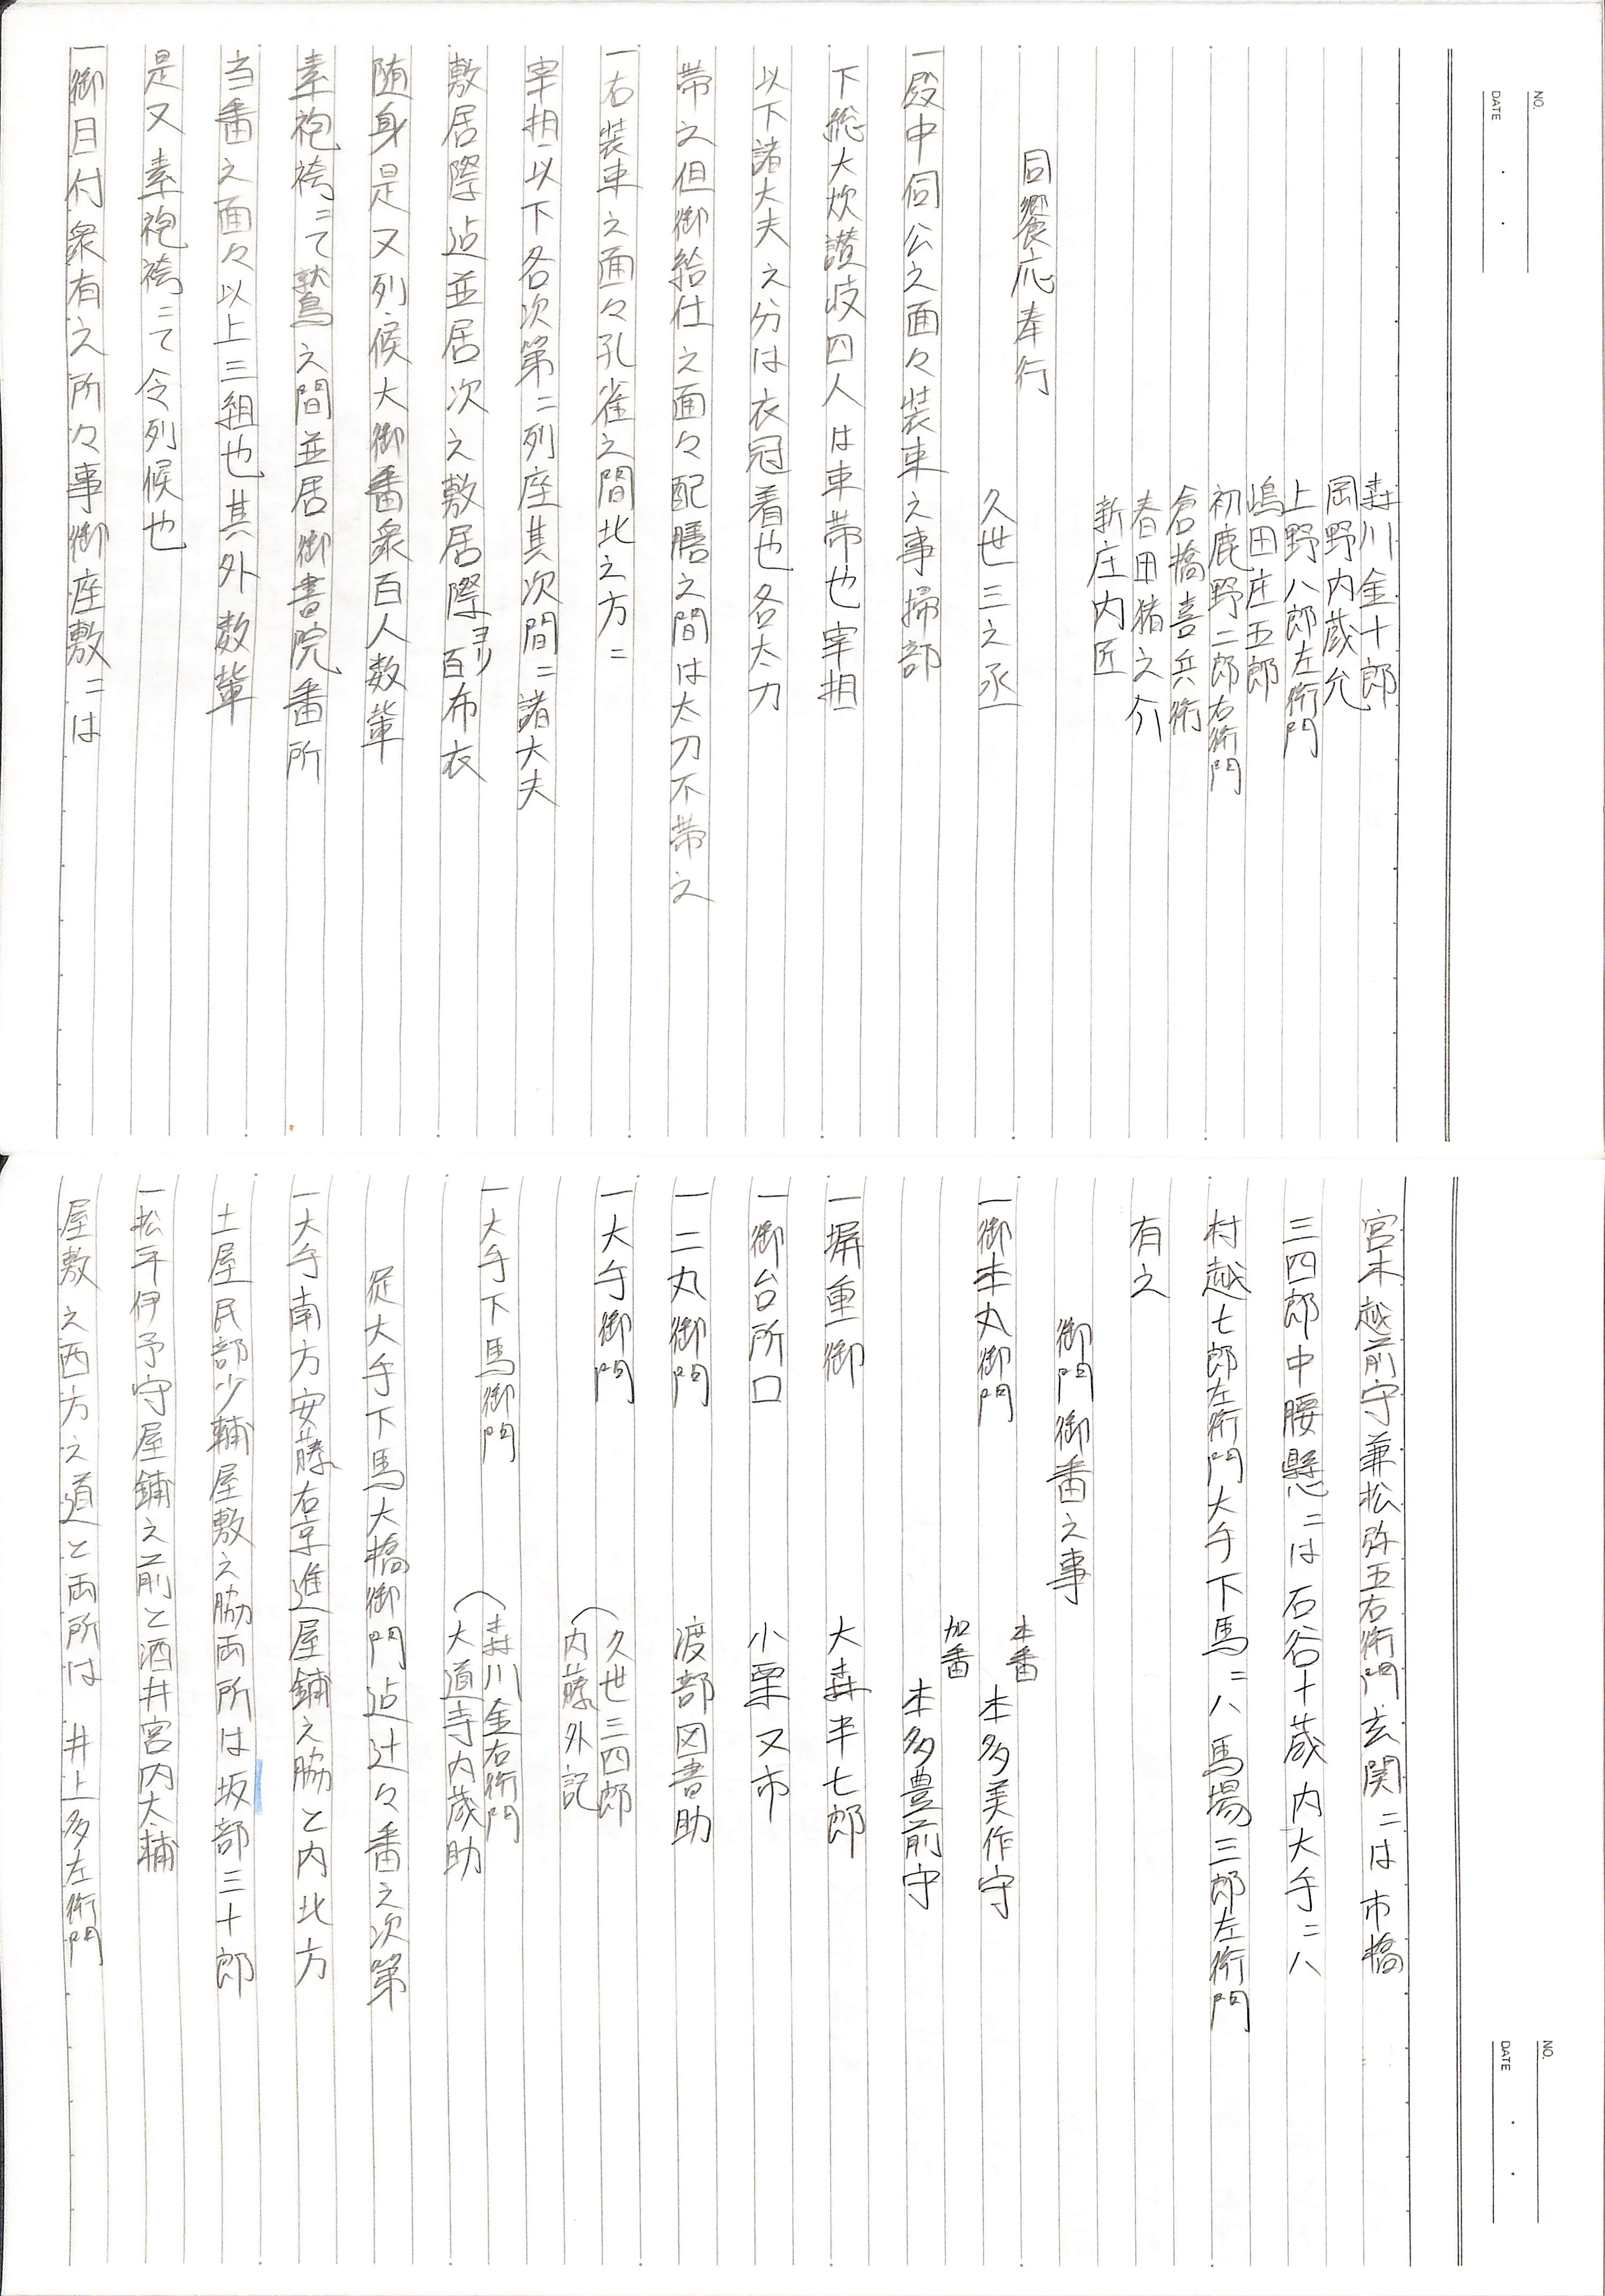 NO.
DATE
森川金十郎
岡野内蔵允
上野八郎左衛門
嶋田庄五郎
初鹿野二郎右衛門
倉橋喜兵衛
春田猪之介
新庄内匠
同饗応奉行
久世三之丞
一殿中伺公之面々装束之事掃部
下総大炊讃岐四人は束帯也宰相
以下諸大夫之分は衣冠着也各太刀
帯之但御給仕之面々配膳之間は太刀不帯之
一右装束之面々孔雀之間北之方ニ
宰相以下各次第ニ列座其次間ニ諸大夫
敷居際迠並居次之敷居際ヨリ百布衣
随身是又列候大御番衆百人数輩
素袍袴ニて鷲之間並居御書院番所
当番之面々以上三組也其外数輩
是又素袍袴ニて令列候也
一御目付衆有之所々事御座敷ニは
NO.
DATE
宮木越前守兼松弥五右衛門玄関ニは市橋
三四郎中腰懸ニは石谷十蔵内大手ニハ
村越七郎左衛門大手下馬ニハ馬場三郎左衛門
有之
御門御番之事
一御本丸御門 本番 本多美作守
加番 本多豊前守
一塀重御 大森半七郎
一御台所口 小栗又市
一二丸御門 渡部図書助
一大手御門 久世三四郎
内藤外記
一大手下馬御門 森川金右衛門
大道寺内蔵助
従大手下馬大橋御門迠辻々番之次第
一大手南方安藤右京進屋鋪之脇と内北方
土屋民部少輔屋敷之脇両所は坂部三十郎
一松平伊予守屋鋪之前と酒井宮内太輔
屋敷之西方之道と両所は 井上多左衛門